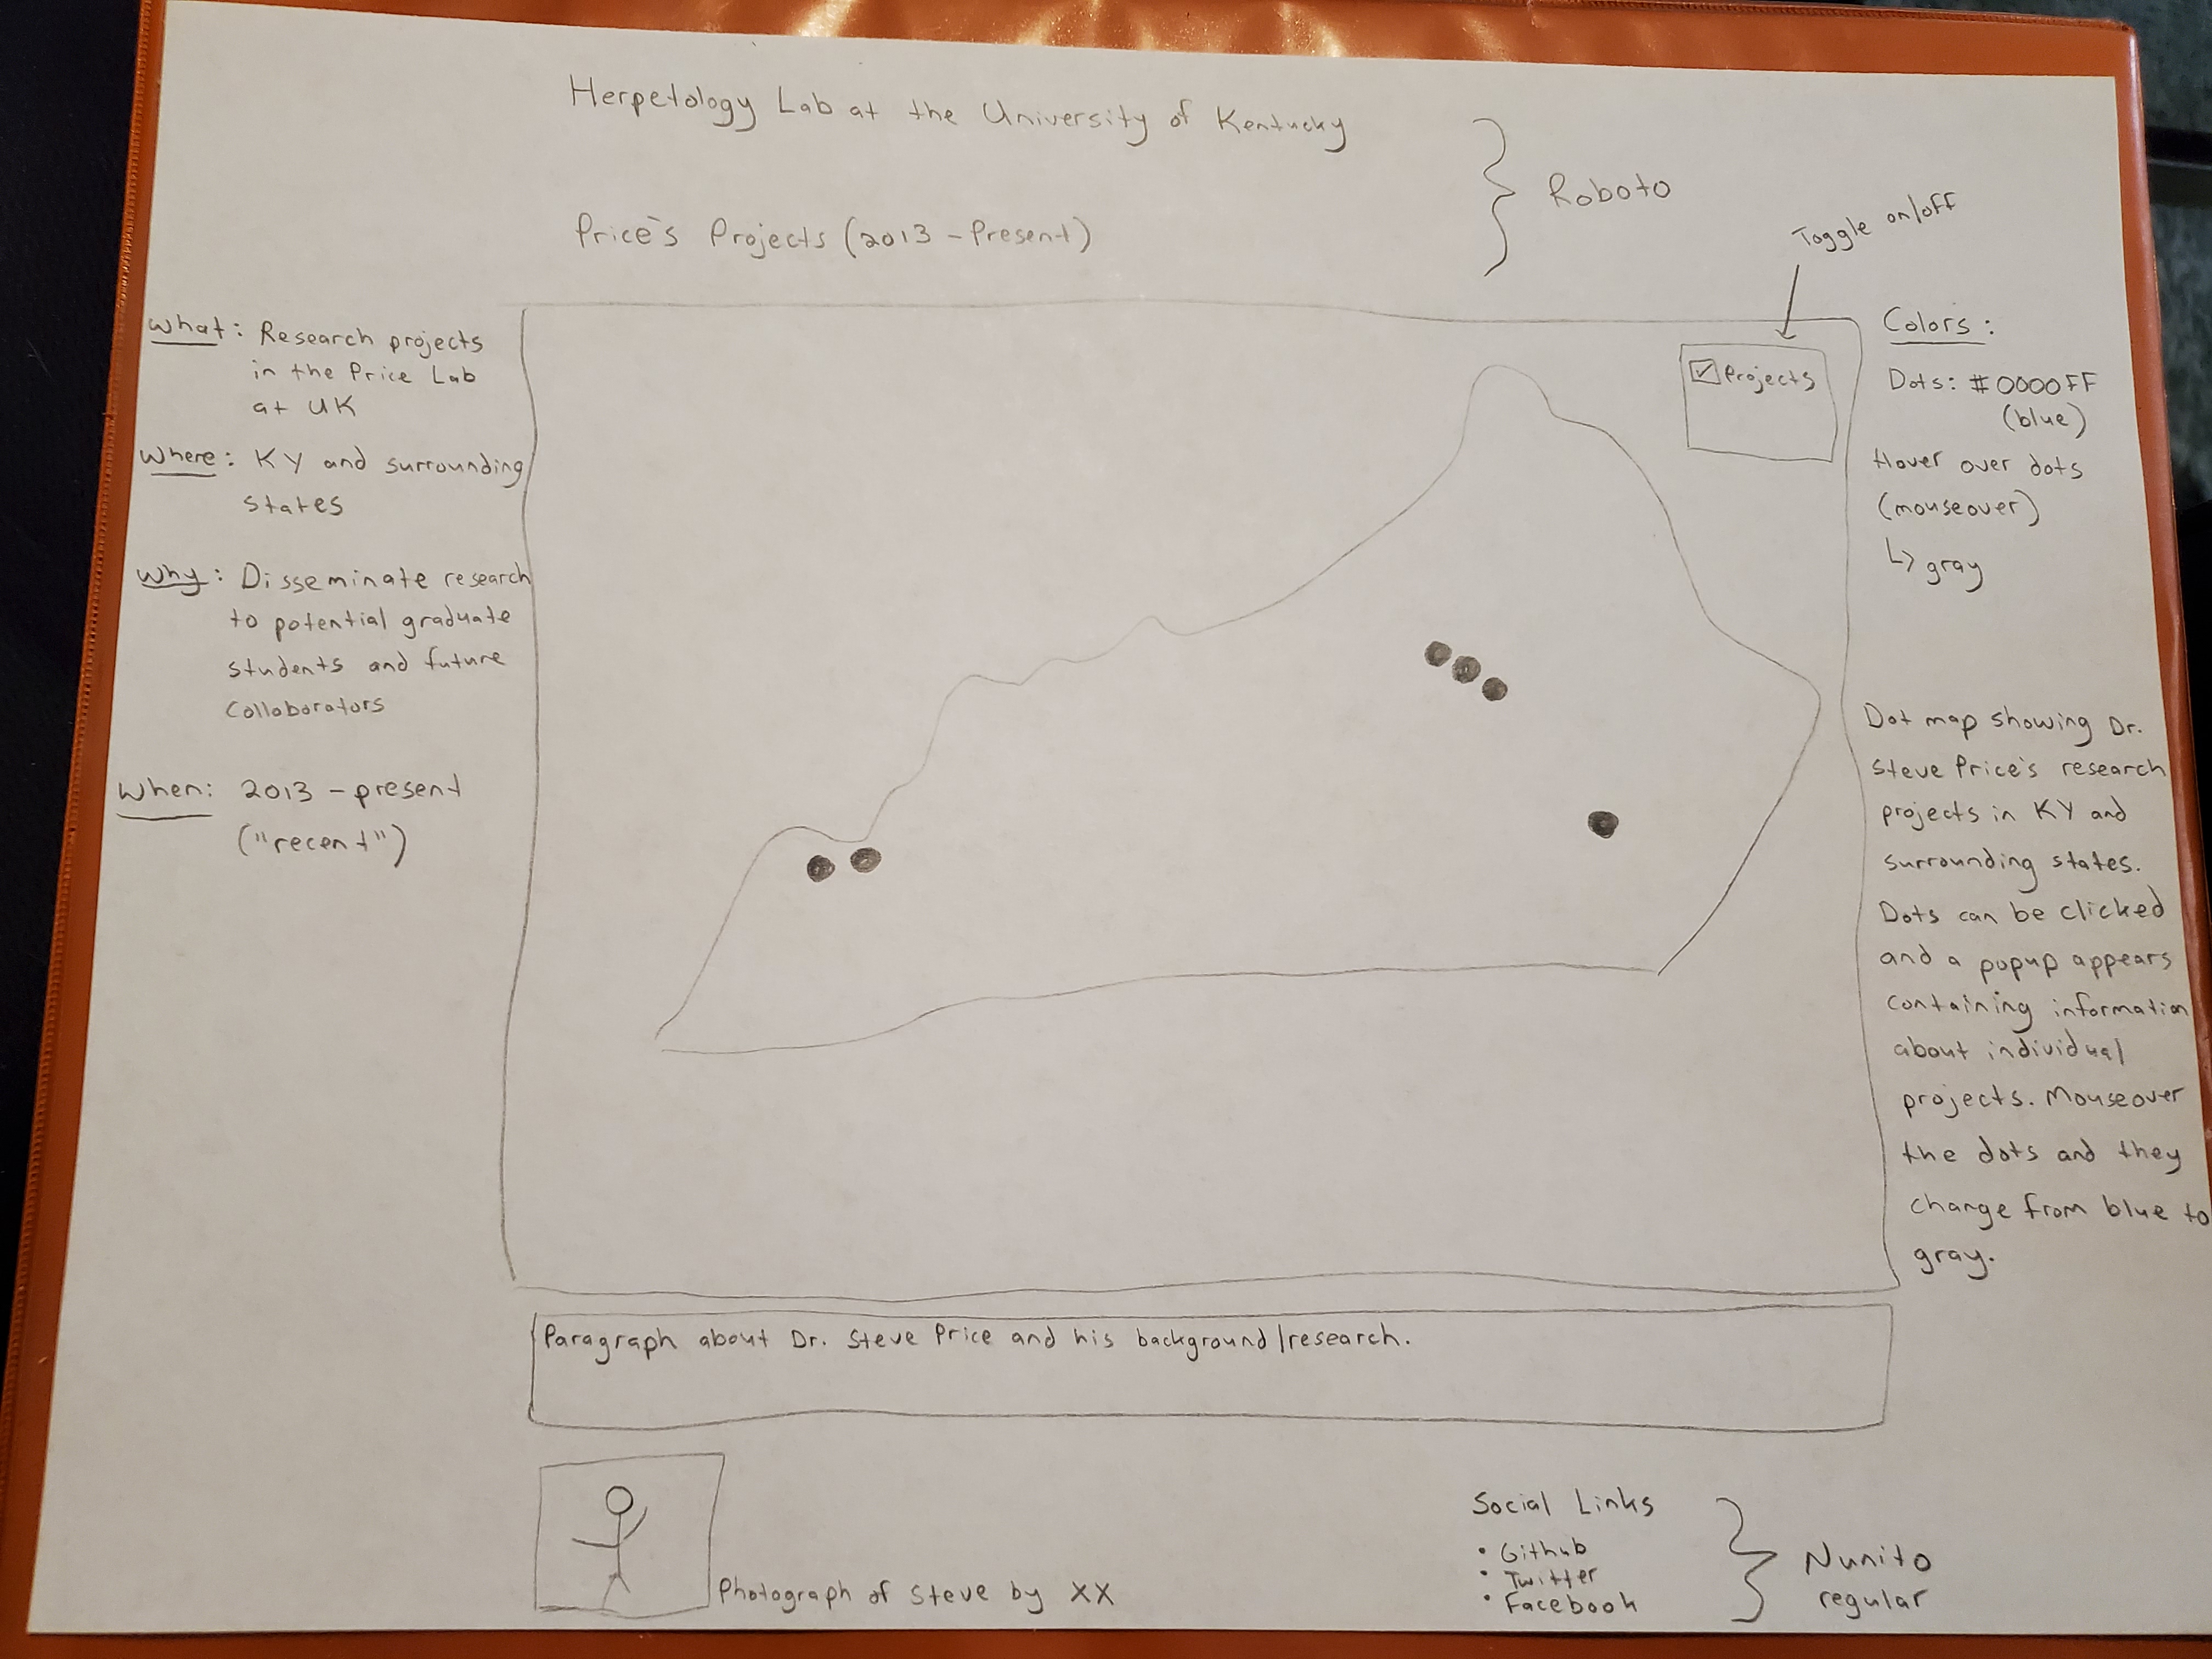 Herpetology Lab at the University of Kentucky
Price's Projects (2013 - Present)
Roboto
Toggle on/off
What: Research projects
in the Price Lab
at UK
Where: KY and surrounding
states
Why: Disseminate research
to potential graduate
students and future
collaborators
When: 2013 - present
("recent")
Projects
Colors:
Dots: #0000FF
(blue)
Hover over dots
(mouseover)
↳ gray
Dot map showing Dr.
Steve Price's research
projects in KY and
surrounding states.
Dots can be clicked
and a popup appears
containing information
about individual
projects. Mouseover
the dots and they
change from blue to
gray.
Paragraph about Dr. Steve Price and his background/research.
Photograph of Steve by XX
Social Links
• Github
• Twitter
• Facebook
Nunito
regular